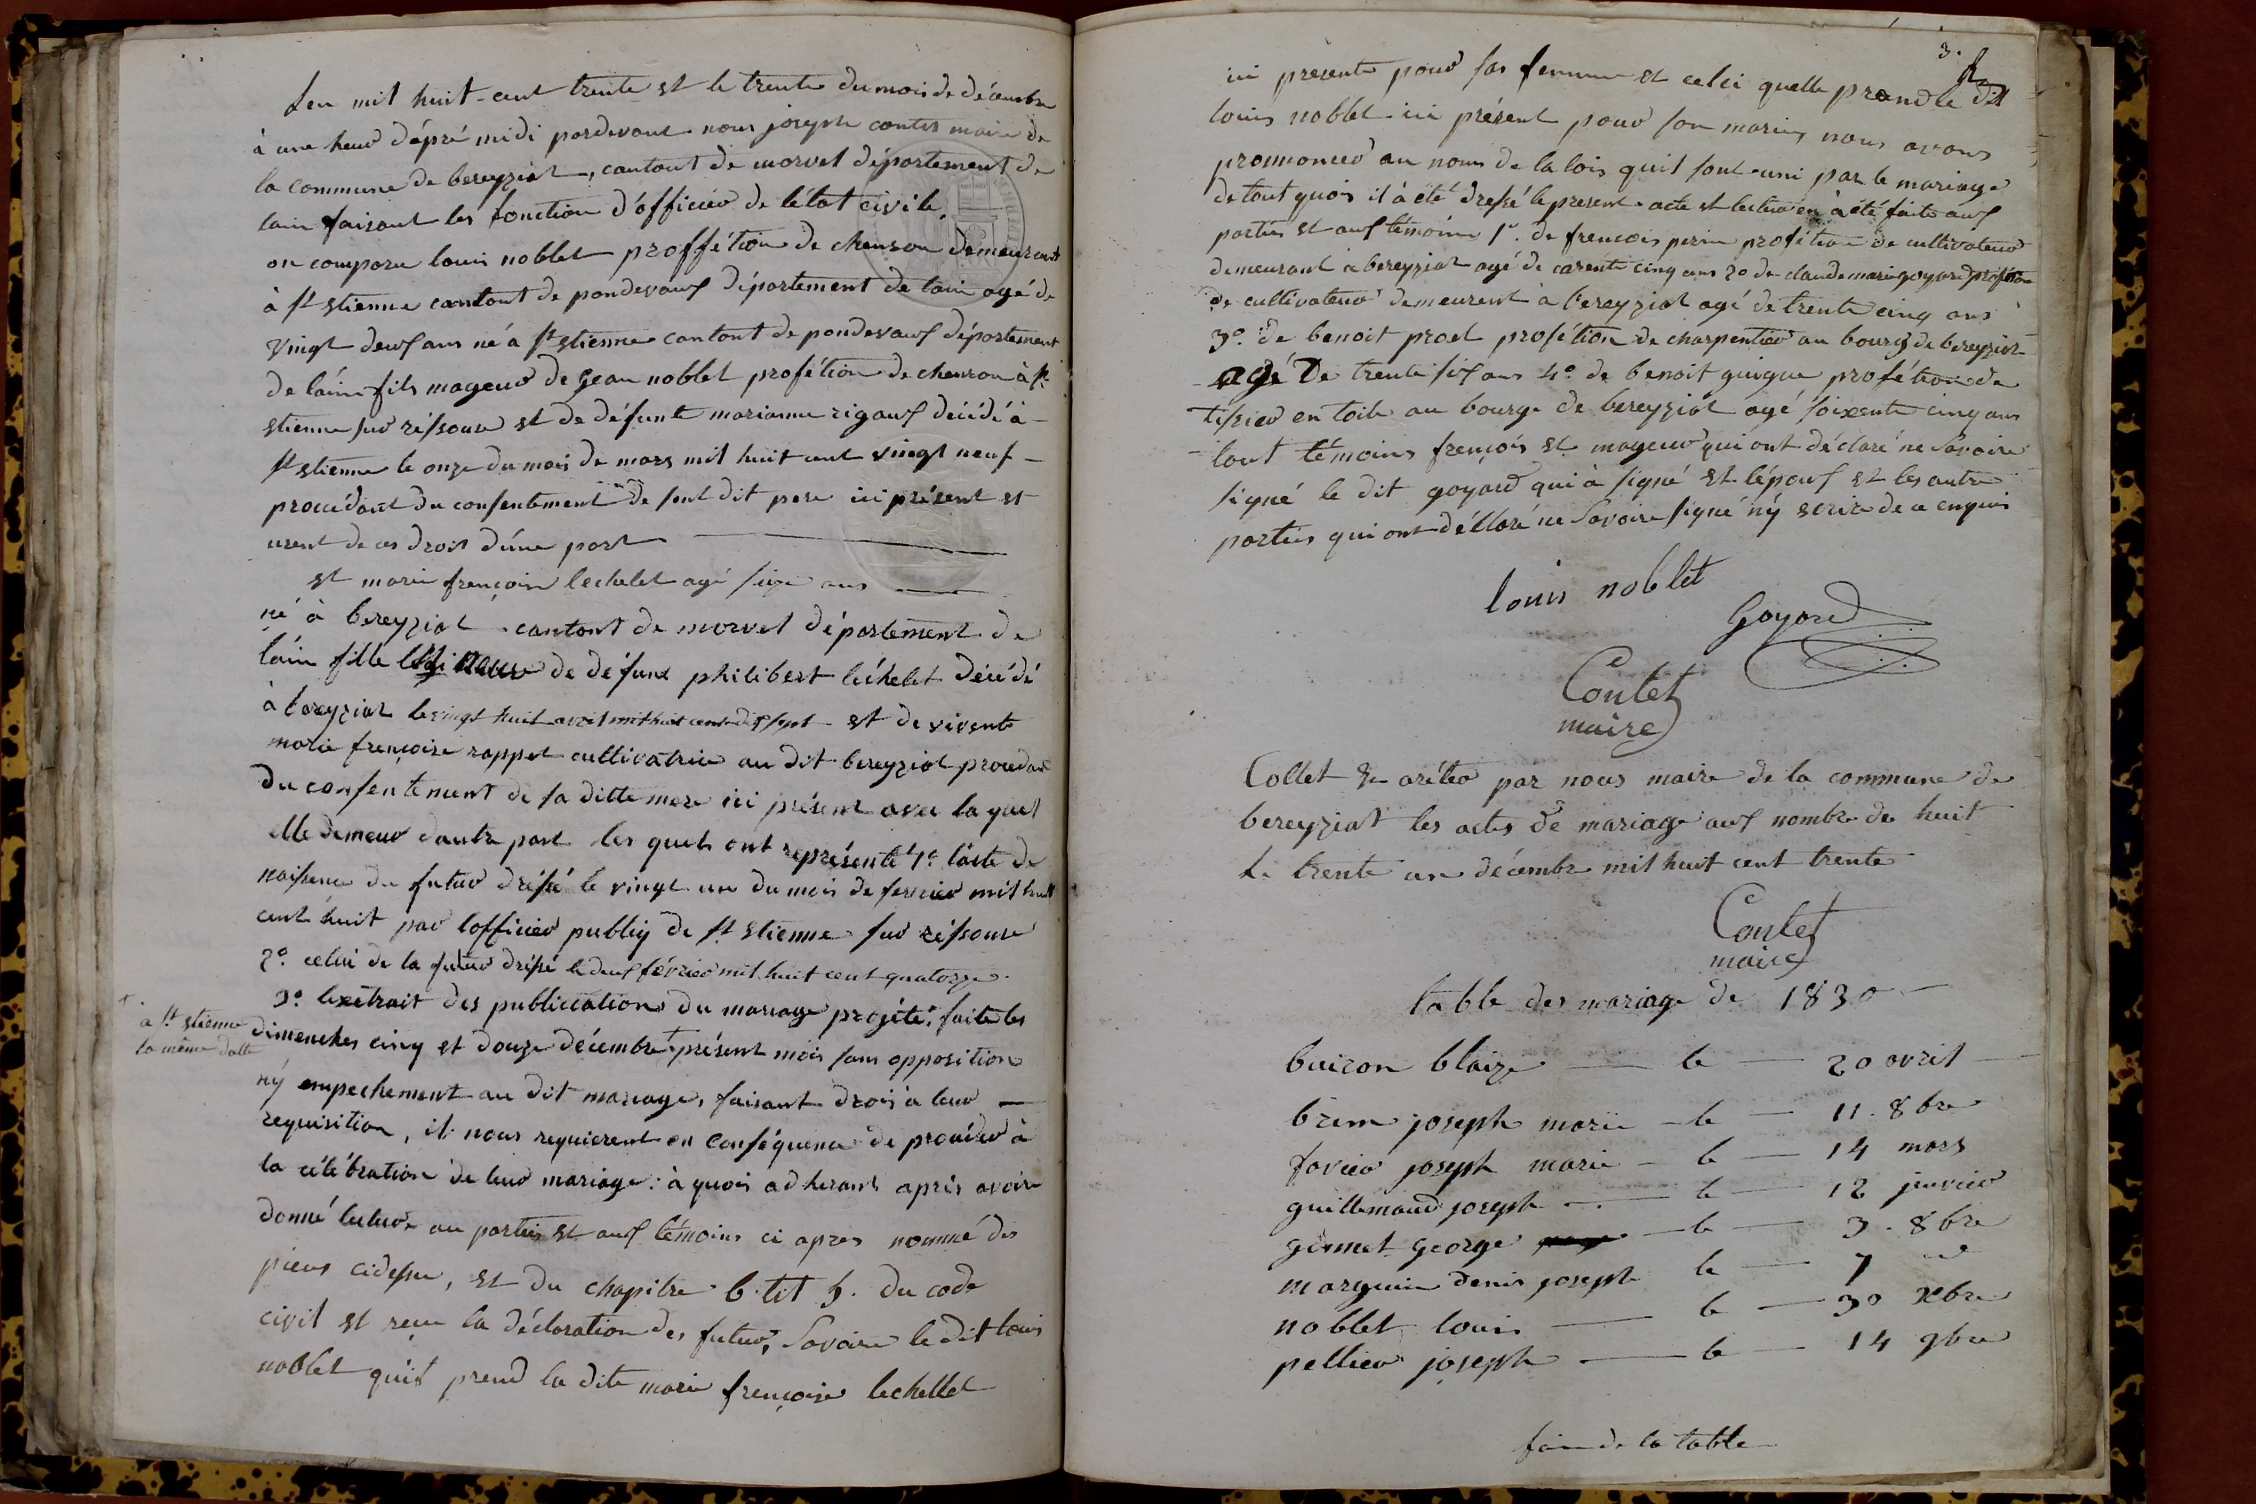 Len mil huit-cent trente et le trente du mois de décembre
à une heur d'épré midi pardevant nous joseph contet maire de
la commune de bereyziat, cantont de morvel département de
lain faisant les fonction d'officier de létat civile
on comparu louis noblet proffétion de chenron demeurant
à st stienne cantont de pondevaux département de lain agé de
vingt deux ans né à st stienne cantont de pondevaux département
de láin fils mageur de gean noblet profétion de chenron à st
stienne sur réssouse et de défunte marianne rigaux décédé à
st stienne le onze du mois de mars mil huit cent vingt neuf
procédant du consentement de sont dit pere ici présent et
urent de ces droit d'úne part
et marie françoise lechelet agé seize ans
né à bereyziat cantont de morvel département de
láin fille de défunt philibert léchelet décédé
à bereyziat le vingt huit avril mil huit cent dix sept et de vivente
marie françoise rappet cultivatrice au dit bereyziat procedant
du consentement de sa ditte mere ici présent avec la quel
elle demeur dautre part les quels ont représenté 1º lácte de
naissence du futur dréssé le vingt un du mois de fevrier mil huit
cent huit par lofficier publiq de st stienne sur réssouse
2º celui de la futur dréssé le deux février mil huit cent quatorze
3º lextrait des publiccations du mariage projété, faite les
à st stienne
la même datte
dimenches cinq et douze décembre + présent mois sans opposition
ný empechement au dit mariage, faisant drois à leur
requisition, il nous requierent en conséquence de procéder à
la célébration de leur mariage: à quois adherant après avoire
donné lectur au parties et aux témoins ci apres nommé des
pieces cidessu, et du chapitre 6. tit 5. du code
civil et reçu la déclaration des futur, savoire le dit louis
noblet quil prend la dite marie françoise lechellet
3.
ici presente pour sas femme et celci quelle prend le dit
louis noblet ici présent pour son maries nous avons
pronnoncer au nom de la lois quil sont uni par le mariage
de tout quois il à été dressé le present acte et lectur en à été faite aux
parties et aux témoins 1º. de francois perin profétion de cultivateur
demeurant à bereyziat agé de carente cinq ans 2º de claude marie goyard profétion
de cultivateur demeurent à bereyziat agé de trente cinq ans
3º. de benoit proet profétion de charpentier au bourg de bereyziat
agé De trente six ans 4º de benoit guigue profétion de
tissier en toile au bourge de bereyziat agé soixente cinq ans
tout témoins françois et mageur qui ont déclaré ne savoire
signé le dit goyard qui à signé et lépoux et les autre
parties qui ont décloré ne savoire signé ný ecrire de ce enquis
louis noblet
Goyard
Contet
maire
Collet & aréter par nous maire de la commune de
bereyziat les actes de mariage aux nombre de huit
le trente un décembre mil huit cent trente
Contet
maire
table des mariage de 1830
buiron blaize le 20 avril
brim joseph marie le 11. 8bre
favier joseph marie le 14 mars
guillemaud joseph le 12 janvier
gesmet george le 3. 8bre
marguin denis joseph le 7
noblet louis le 30 xbre
pellier joseph le 14 9bre
fain de la table